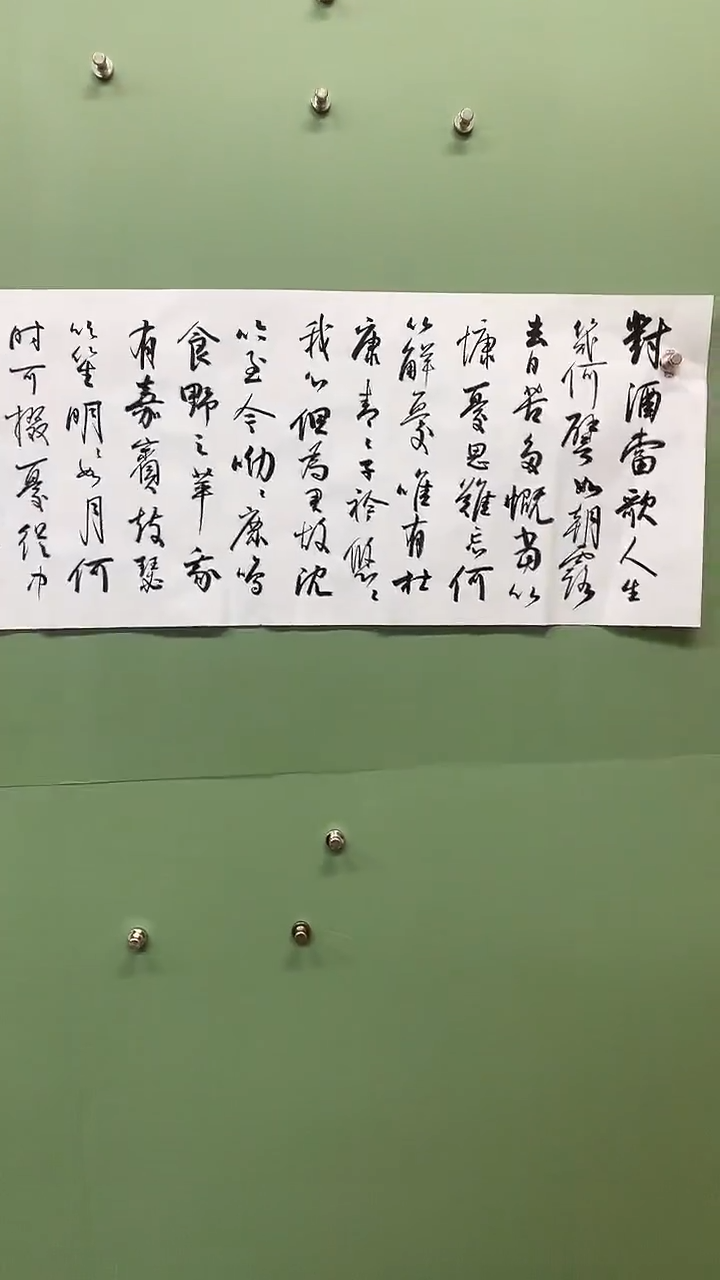 對酒當歌人生
幾何譬如朝露
去日苦多慨當以
慷憂思難忘何
以解憂唯有杜
康青々子衿悠々
我心但為君故沈
吟至今呦々鹿鳴
食野之苹我
有嘉賓鼓瑟
吹笙明々如月何
时可掇憂從中